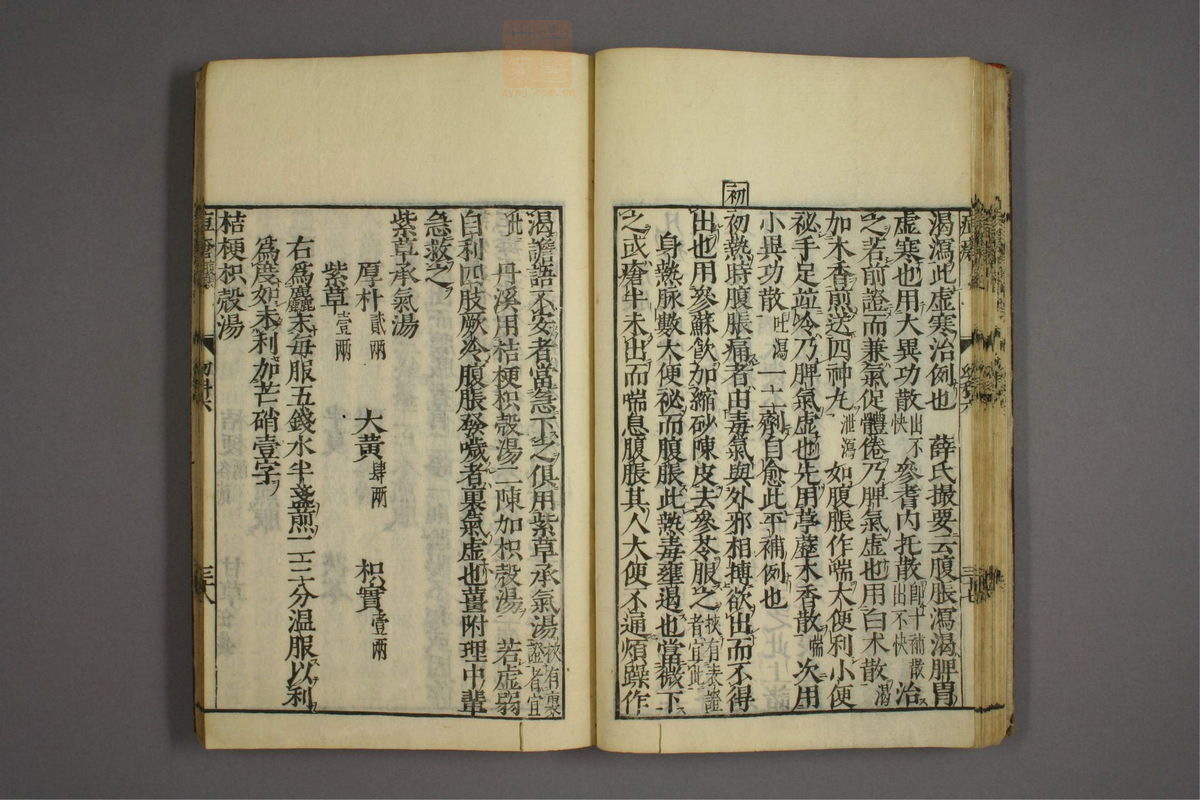 渴瀉此虛寒治例也　薛氏撮要云腹脹瀉渴脾胃
虛寒也用大異功散出不快參芪內托散卽十補散出不快治
之若前證而兼氣促體倦乃脾氣虛也用白朮散渴
加木香煎送四神丸泄瀉如腹脹作喘大便利小便
祕手足並冷乃脾氣虛也先用葶藶木香散喘次用
小異功散吐瀉一二劑自愈此平補例也
初
初熱時腹脹痛者由毒氣與外邪相搏欲出而不得
出也用參蘇飮加縮砂陳皮去參苓服之挾有表證者宜此
身熱脉數大便祕而腹脹此熱毒壅遏也當微下
之或瘡半未出而喘息腹脹其人大便不通煩躁作
渴譫語不安者當急下之俱用紫草承氣湯挾有裏證者宜
此　丹溪用桔梗枳殼湯二陳加枳殼湯　若虛弱
自利四肢厥冷腹脹發噦者裏氣虛也薑附理中輩
急救之
紫草承氣湯
厚朴貳兩　大黃肆兩　枳實壹兩
紫草壹兩
右爲麤末每服五錢水半盞煎一二三分溫服以利
爲度如未利加芒硝壹字
桔梗枳殼湯